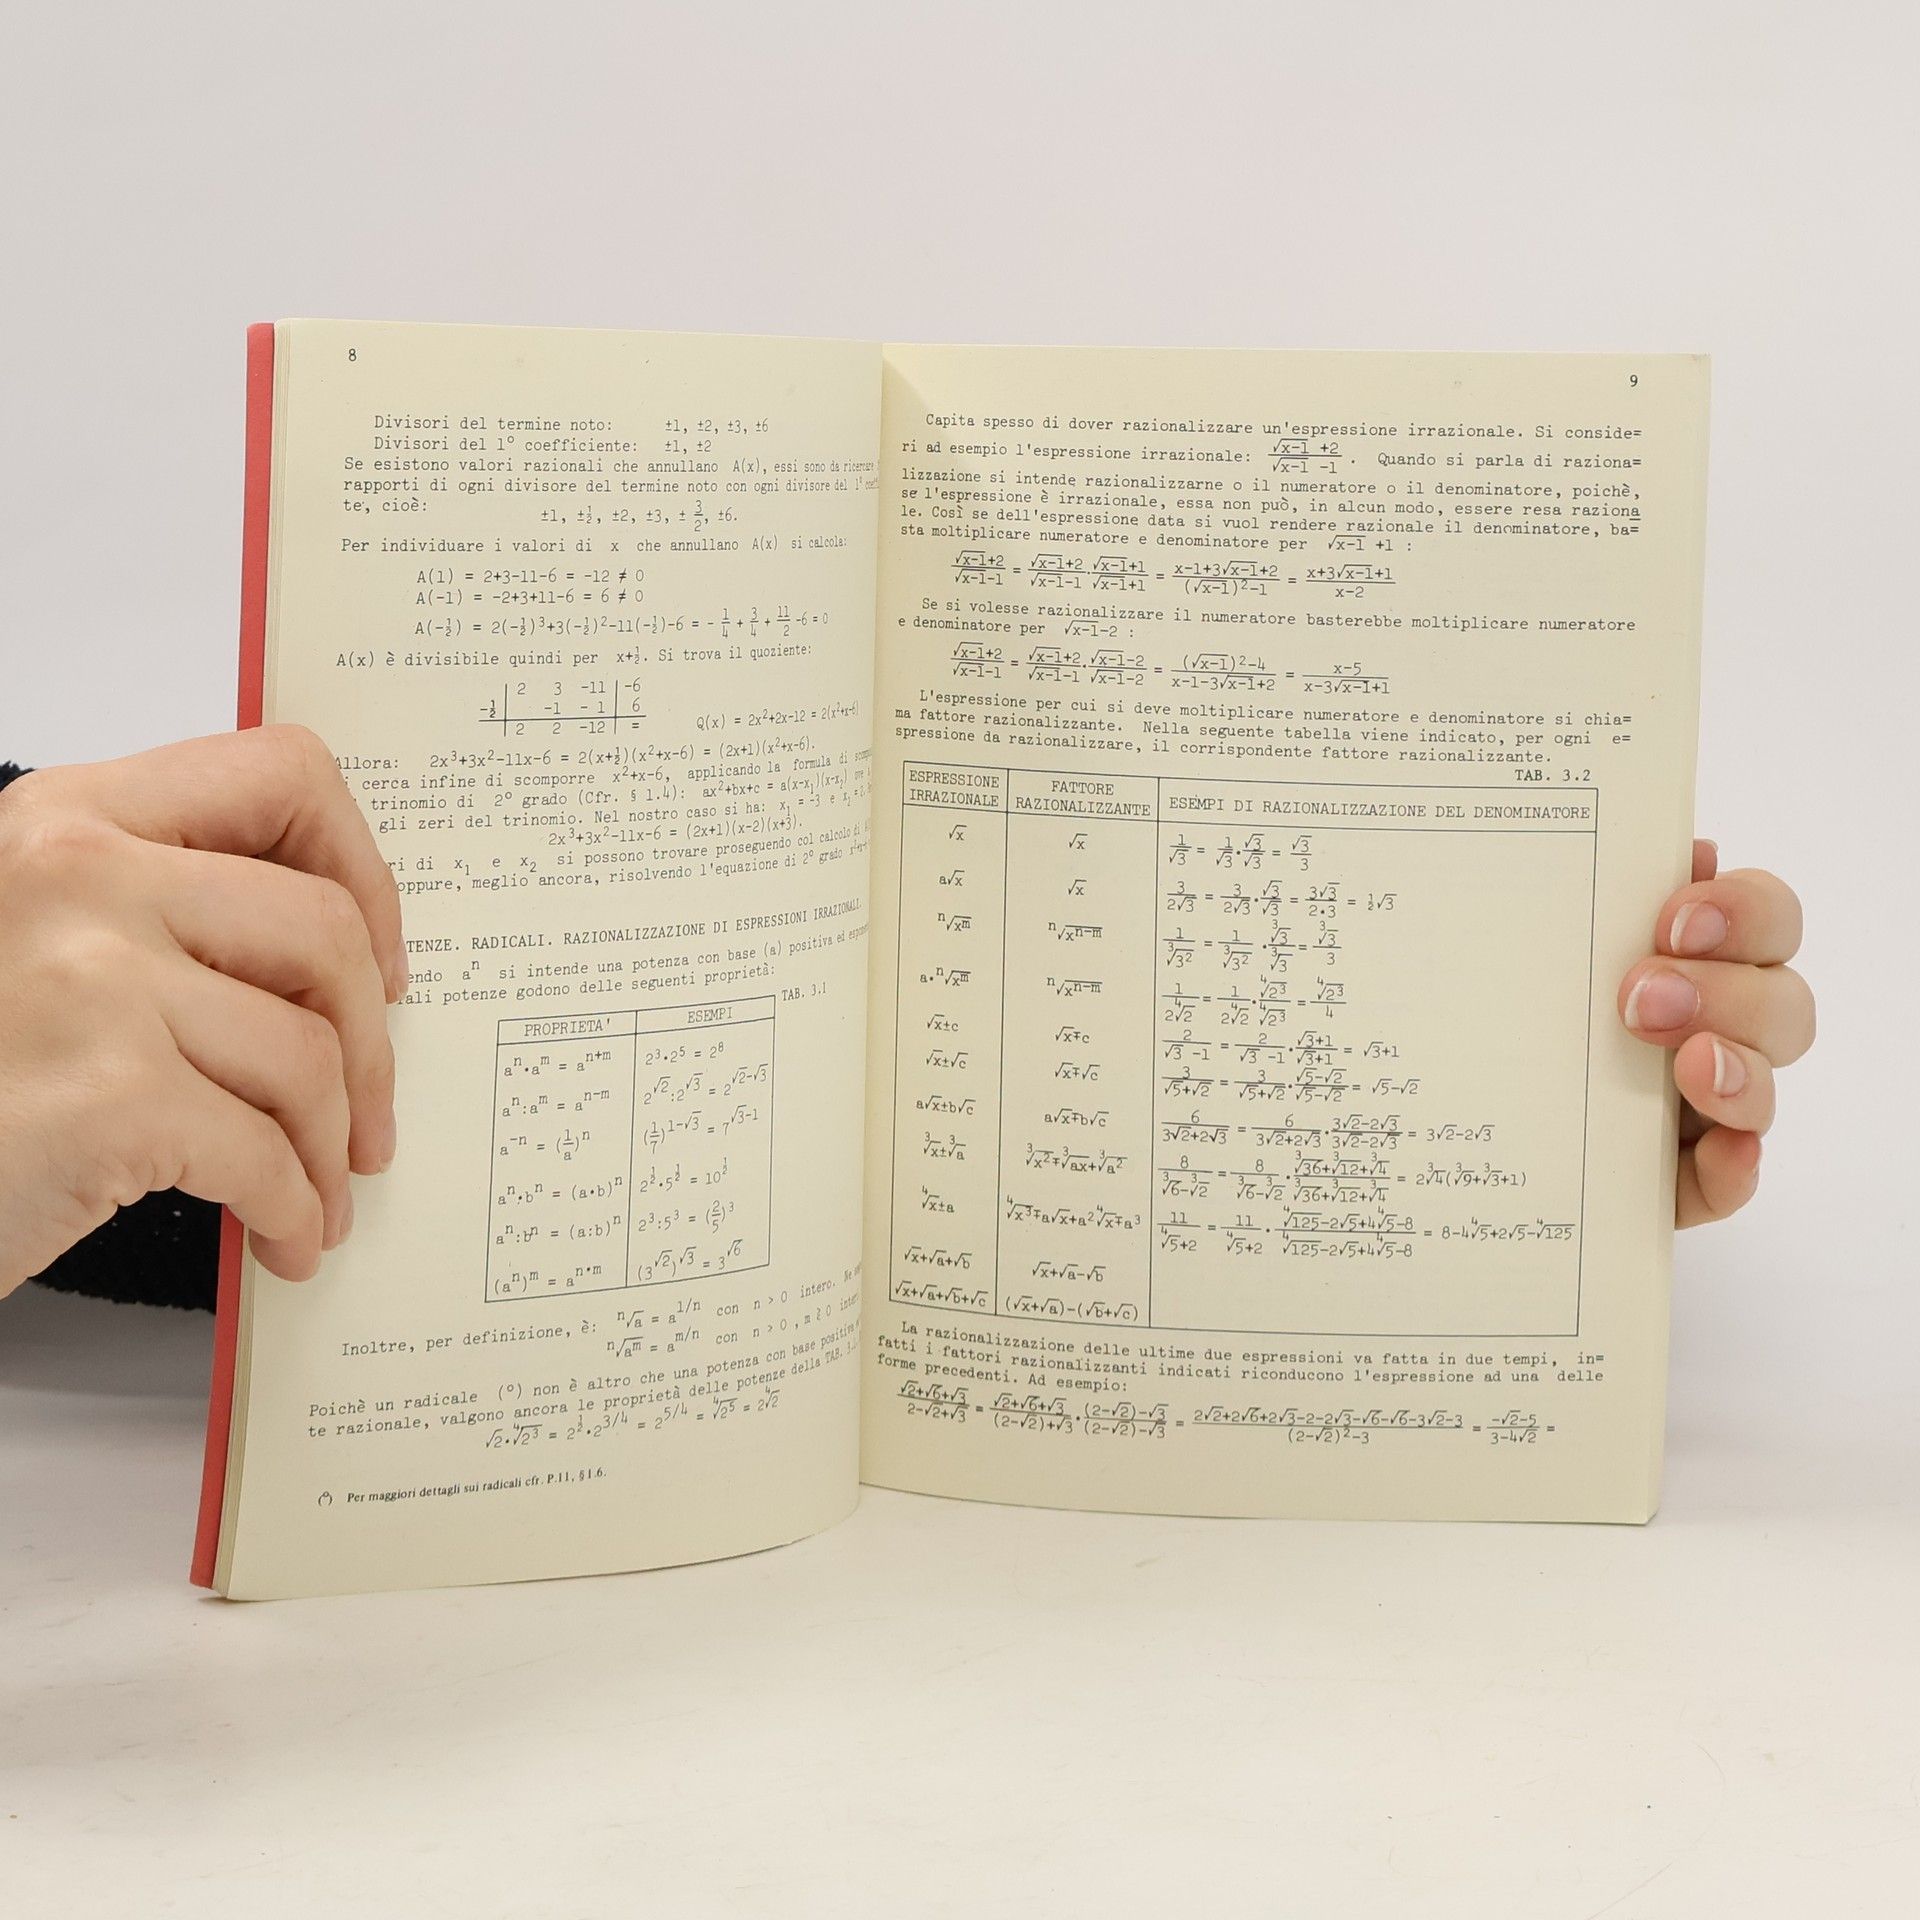 8
Divisori del termine noto: ±1, ±2, ±3, ±6
Divisori del 1° coefficiente: ±1, ±2
Se esistono valori razionali che annullano A(x), essi sono da ricercare
rapporti di ogni divisore del termine noto con ogni divisore del 1°
te, cioè:
±1, ±½, ±2, ±3, ± 3/2, ±6.
Per individuare i valori di x che annullano A(x) si calcola:
A(1) = 2+3-11-6 = -12 ≠ 0
A(-1) = -2+3+11-6 = 6 ≠ 0
A(-½) = 2(-½)³+3(-½)²-11(-½)-6 = - 1/4 + 3/4 + 11/2 -6 = 0
A(x) è divisibile quindi per x+½. Si trova il quoziente:
2 3 -11 -6
-½ -1 - 1 6
2 2 -12 =
Q(x) = 2x²+2x-12 = 2(x²+x-6)
Allora: 2x³+3x²-11x-6 = 2(x+½)(x²+x-6) = (2x+1)(x²+x-6).
cerca infine di scomporre x²+x-6, applicando la formula di
trinomio di 2° grado (Cfr. § 1.4): ax²+bx+c = a(x-x₁)(x-x₂) ove
gli zeri del trinomio. Nel nostro caso si ha: x₁ = -3 e x₂ = 2.
2x³+3x²-11x-6 = (2x+1)(x-2)(x+3).
ri di x₁ e x₂ si possono trovare proseguendo col calcolo di
oppure, meglio ancora, risolvendo l'equazione di 2° grado
TENZE. RADICALI. RAZIONALIZZAZIONE DI ESPRESSIONI IRRAZIONALI.
endo aⁿ si intende una potenza con base (a) positiva ed
ali potenze godono delle seguenti proprietà:
TAB. 3.1
PROPRIETA' ESEMPI
aⁿ·aᵐ = aⁿ⁺ᵐ 2³·2⁵ = 2⁸
aⁿ:aᵐ = aⁿ⁻ᵐ 2^√2:2^√3 = 2^(√2-√3)
a⁻ⁿ = (1/a)ⁿ (1/7)^(1-√3) = 7^(√3-1)
aⁿ·bⁿ = (a·b)ⁿ 2^½·5^½ = 10^½
aⁿ:bⁿ = (a:b)ⁿ 2³:5³ = (2/5)³
(aⁿ)ᵐ = aⁿ·ᵐ (3^√2)^√3 = 3^√6
Inoltre, per definizione, è: ⁿ√a = a^(1/n) con n > 0 intero.
ⁿ√aᵐ = a^(m/n) con n > 0 , m ≥ 0
Poichè un radicale (°) non è altro che una potenza con base positiva
te razionale, valgono ancora le proprietà delle potenze della TAB. 3.1
√2·⁴√2³ = 2^½·2^(3/4) = 2^(5/4) = ⁴√2⁵ = 2⁴√2
(°) Per maggiori dettagli sui radicali cfr. P.11, § 1.6.
9
Capita spesso di dover razionalizzare un'espressione irrazionale. Si conside=
ri ad esempio l'espressione irrazionale: (√(x-1) +2)/(√(x-1) -1) . Quando si parla di raziona=
lizzazione si intende razionalizzarne o il numeratore o il denominatore, poichè,
se l'espressione è irrazionale, essa non può, in alcun modo, essere resa raziona
le. Così se dell'espressione data si vuol rendere razionale il denominatore, ba=
sta moltiplicare numeratore e denominatore per √(x-1) +1 :
(√(x-1)+2)/(√(x-1)-1) = (√(x-1)+2)/(√(x-1)-1)·(√(x-1)+1)/(√(x-1)+1) = (x-1+3√(x-1)+2)/((√(x-1))²-1) = (x+3√(x-1)+1)/(x-2)
Se si volesse razionalizzare il numeratore basterebbe moltiplicare numeratore
e denominatore per √(x-1)-2 :
(√(x-1)+2)/(√(x-1)-1) = (√(x-1)+2)/(√(x-1)-1)·(√(x-1)-2)/(√(x-1)-2) = ((√(x-1))²-4)/(x-1-3√(x-1)+2) = (x-5)/(x-3√(x-1)+1)
L'espressione per cui si deve moltiplicare numeratore e denominatore si chia=
ma fattore razionalizzante. Nella seguente tabella viene indicato, per ogni e=
spressione da razionalizzare, il corrispondente fattore razionalizzante.
TAB. 3.2
ESPRESSIONE IRRAZIONALE FATTORE RAZIONALIZZANTE ESEMPI DI RAZIONALIZZAZIONE DEL DENOMINATORE
√x √x 1/√3 = 1/√3·√3/√3 = √3/3
a√x √x 3/(2√3) = 3/(2√3)·√3/√3 = 3√3/(2·3) = ½√3
ⁿ√xᵐ ⁿ√xⁿ⁻ᵐ 1/³√3² = 1/³√3² ·³√3/³√3 = ³√3/3
a·ⁿ√xᵐ ⁿ√xⁿ⁻ᵐ 1/(2⁴√2) = 1/(2⁴√2)·⁴√2³/⁴√2³ = ⁴√2³/4
√x±c √x∓c 2/(√3 -1) = 2/(√3 -1)·(√3+1)/(√3+1) = √3+1
√x±√c √x∓√c 3/(√5+√2) = 3/(√5+√2)·(√5-√2)/(√5-√2) = √5-√2
a√x±b√c a√x∓b√c 6/(3√2+2√3) = 6/(3√2+2√3)·(3√2-2√3)/(3√2-2√3) = 3√2-2√3
³√x±³√a ³√x²∓³√ax+³√a² 8/(³√6-³√2) = 8/(³√6-³√2)·(³√36+³√12+³√4)/(³√36+³√12+³√4) = 2³√4(³√9+³√3+1)
⁴√x±a ⁴√x³∓a√x+a²⁴√x∓a³ 11/(⁴√5+2) = 11/(⁴√5+2)·(⁴√125-2√5+4⁴√5-8)/(⁴√125-2√5+4⁴√5-8) = 8-4⁴√5+2√5-⁴√125
√x+√a+√b √x+√a-√b
√x+√a+√b+√c (√x+√a)-(√b+√c)
La razionalizzazione delle ultime due espressioni va fatta in due tempi, in=
fatti i fattori razionalizzanti indicati riconducono l'espressione ad una delle
forme precedenti. Ad esempio:
(√2+√6+√3)/(2-√2+√3) = (√2+√6+√3)/((2-√2)+√3)·((2-√2)-√3)/((2-√2)-√3) = (2√2+2√6+2√3-2-2√3-√6-√6-3√2-3)/((2-√2)²-3) = (-√2-5)/(3-4√2) =